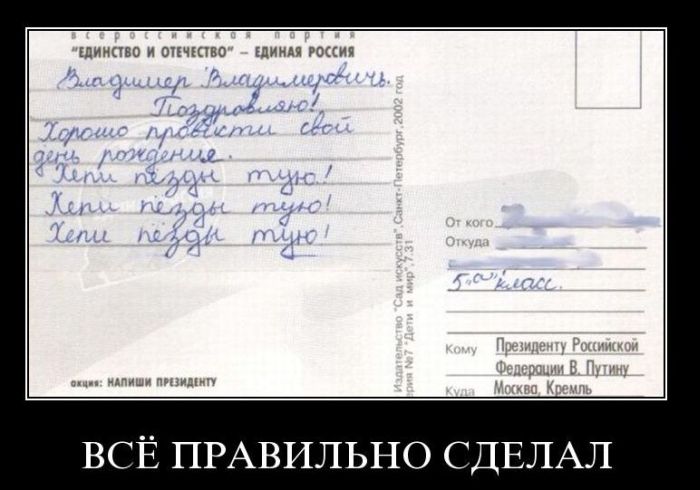 всероссийская партия
"ЕДИНСТВО И ОТЕЧЕСТВО" – ЕДИНАЯ РОССИЯ
Владимер Владимеровичь.
Поздровляю!
Хорошо провѣкти свой
день рождение.
Хепи пёзды тую!
Хепи пёзды тую!
Хепи пёзды тую!
акция: НАПИШИ ПРЕЗИДЕНТУ
Издательство "Сад искусств", Санкт-Петербург, 2002 год
рия №7 "Дети и мир", 7.31
От кого
Откуда
5 "а" класс.
Кому Президенту Российской
Федерации В. Путину
Куда Москва, Кремль
ВСЁ ПРАВИЛЬНО СДЕЛАЛ